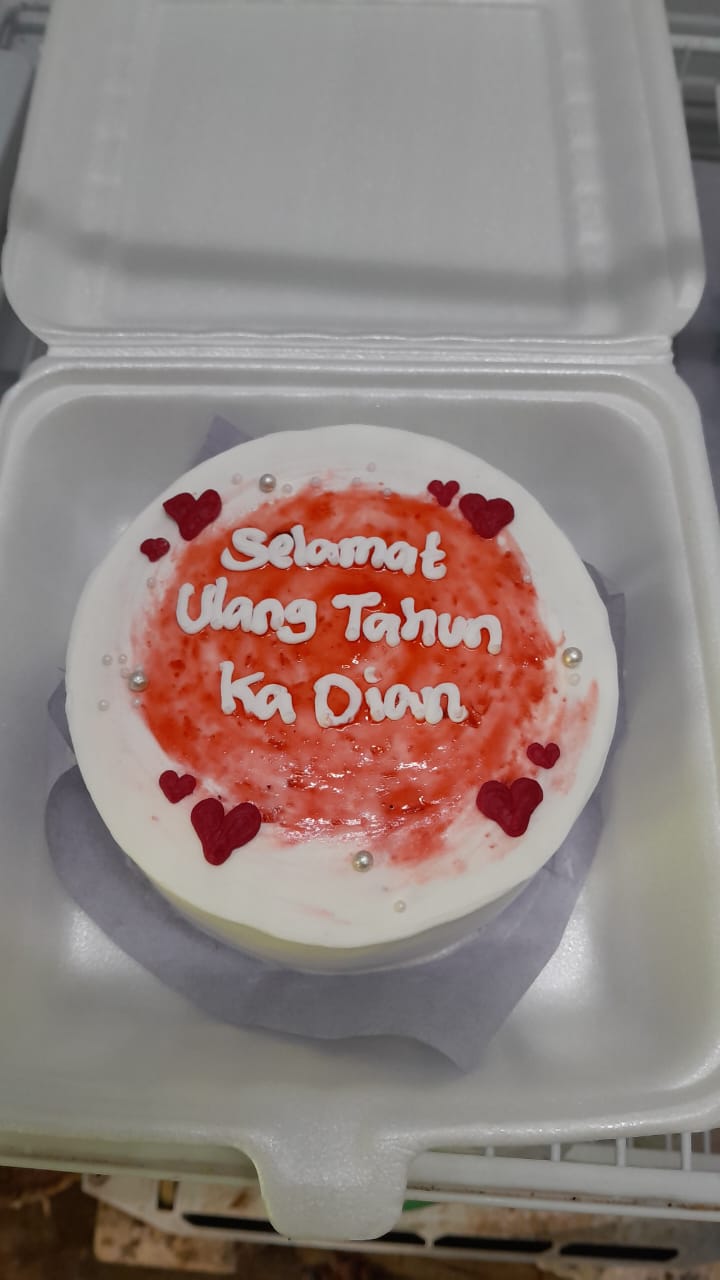 Selamat
Ulang Tahun
Ka Dian